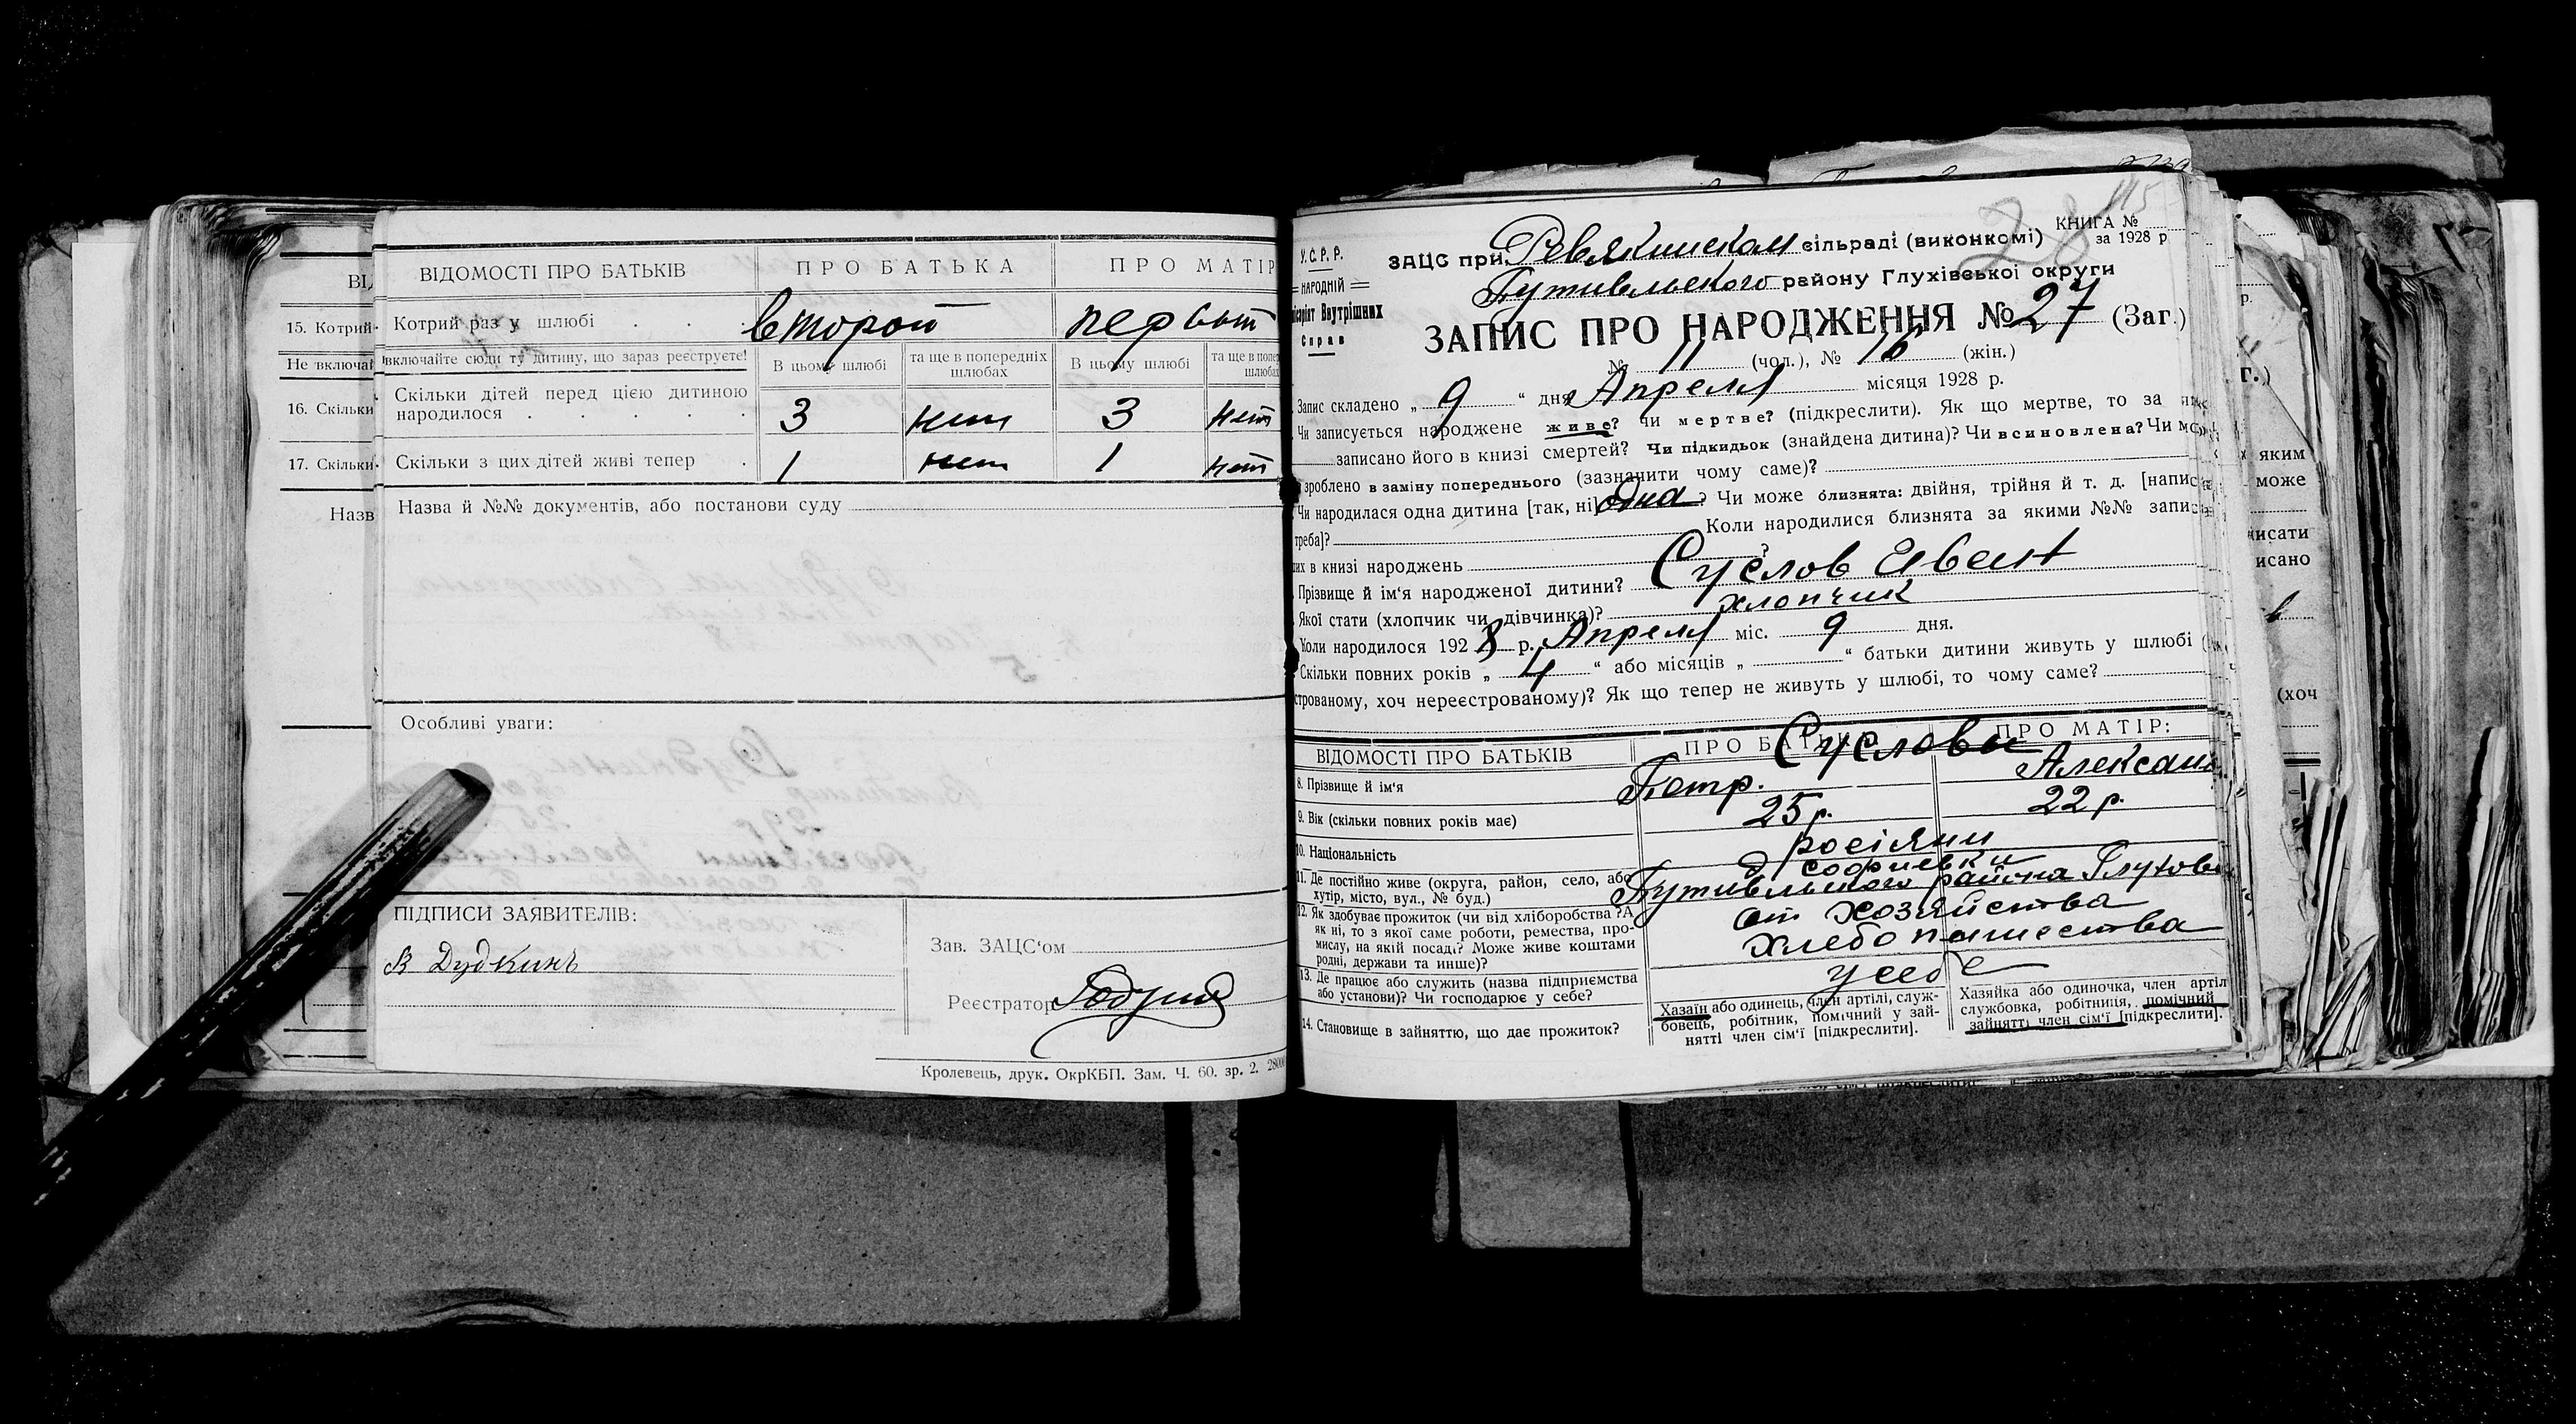 ВІДОМОСТІ ПРО БАТЬКІВ ПРО БАТЬКА ПРО МАТІР
15. Котрий Котрий раз у шлюбі второй первый
Не включай включайте сюди ту дитину, що зараз реєструєте! В цьому шлюбі та ще в попередніх шлюбах В цьому шлюбі та ще в попер шлюбах
16. Скільки Скільки дітей перед цією дитиною
народилося 3 нет 3 нет
17. Скільки Скільки з цих дітей живі тепер 1 нет 1 нет
Назв Назва й №№ документів, або постанови суду
Особливі уваги:
ПІДПИСИ ЗАЯВИТЕЛІВ:
В Дудкинъ
Зав. ЗАЦС'ом
Реєстратор
Кролевець, друк. ОкрКБП. Зам. Ч. 60. зр. 2. 28000
У.С.Р.Р.
НАРОДНІЙ
Внутрішних
Справ
КНИГА №
за 1928 р
28
115
ЗАЦС при Ревякинском сільраді (виконкомі)
Путивльского району Глухівської округи
ЗАПИС ПРО НАРОДЖЕННЯ № 27 (Заг.)
№ 11 (чол.), № 16 (жін.)
Запис складено „ 9 “ дня Апреля місяця 1928 р.
Чи записується народжене живе? чи мертве? (підкреслити). Як що мертве, то за
записано його в книзі смертей? Чи підкидьок (знайдена дитина)? Чи всиновлена? Чи
зроблено в заміну попереднього (зазначити чому саме)?
Чи народилася одна дитина [так, ні] одна? Чи може близнята: двійня, трійня й т. д. [напис
треба]? Коли народилися близнята за якими №№ запис
их в книзі народжень ?
Прізвище й ім'я народженої дитини? Суслов Иван
Якої стати (хлопчик чи дівчинка)? хлопчик
Коли народилося 1928 р. Апреля міс. 9 дня.
Скільки повних років „ 4 “ або місяців „ “ батьки дитини живуть у шлюбі (
строваному, хоч нереєстрованому)? Як що тепер не живуть у шлюбі, то чому саме?
ВІДОМОСТІ ПРО БАТЬКІВ ПРО БАТЬКА ПРО МАТІР:
Сусловы
8. Прізвище й ім'я Петр. Алексан
9. Вік (скільки повних років має) 25 р. 22 р.
10. Національність росіяни
11. Де постійно живе (округа, район, село, або
хутір, місто, вул., № буд.) д Софиевки
Путивльского района Глухов
12. Як здобуває прожиток (чи від хліборобства? А
як ні, то з якої саме роботи, ремества, про-
мислу, на якій посаді? Може живе коштами
родні, держави та инше)? от хозяйства
хлебопашества
13. Де працює або служить (назва підприємства
або установи)? Чи господарює у себе? у себе
14. Становище в зайняттю, що дає прожиток?
Хазаїн або одинець, член артілі, служ-
бовець, робітник, помічний у зай-
нятті член сім'ї [підкреслити].
Хазяйка або одиночка, член артіл
службовка, робітниця, помічний
зайнятті член сім'ї [підкреслити].
р.
г.)
яким
може
писати
исано
(хоч